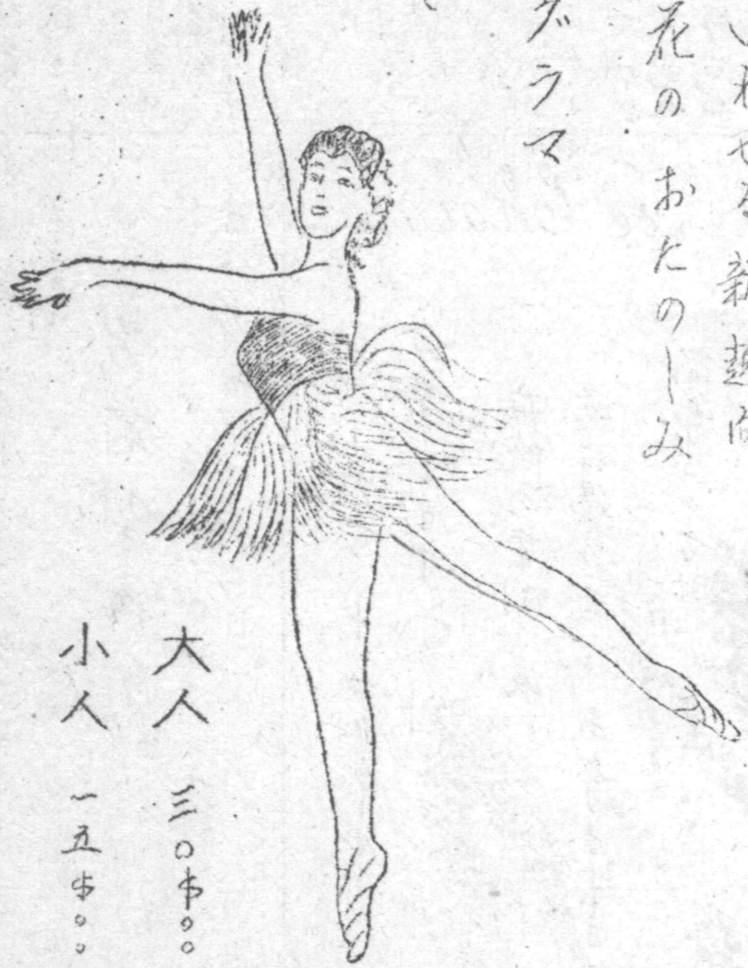 わせる新趣向
花のおたのしみ
グラマ
大人 三〇$〇〇
小人 一五$〇〇